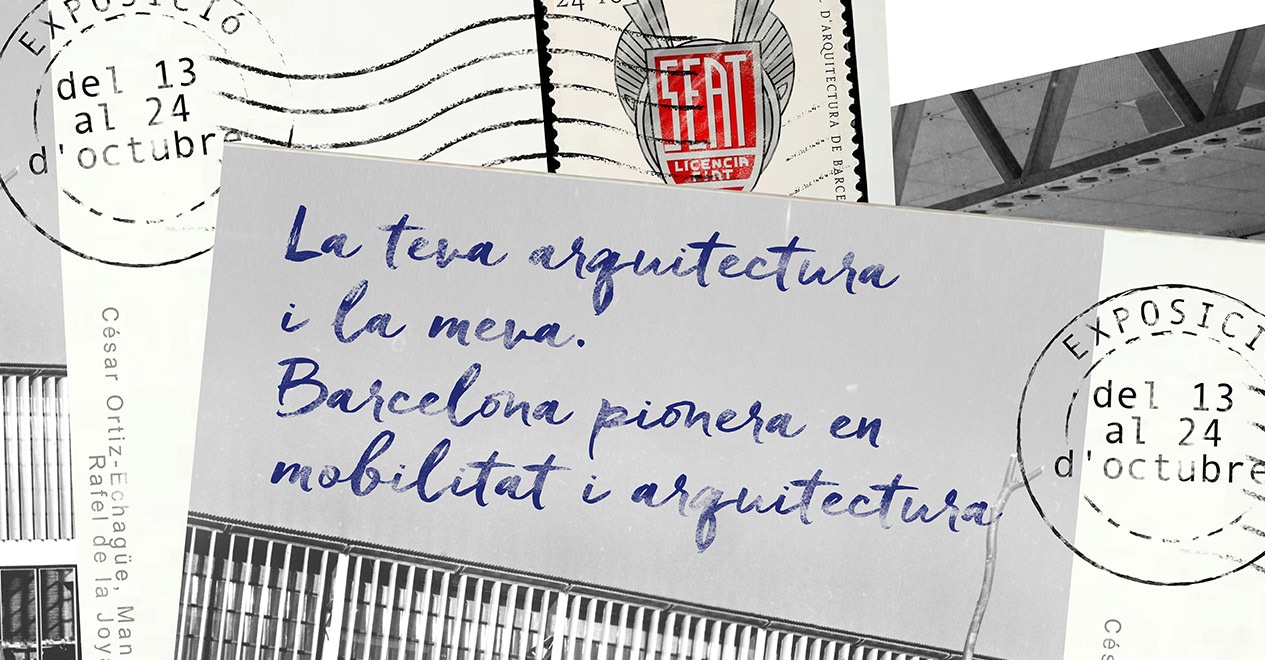 EXPOSICIÓ
del 13
al 24
d'octubre
SEAT
LICENCIA
FIAT
D'ARQUITECTURA DE BARCE
La teva arquitectura
i la meva.
Barcelona pionera en
mobilitat i arquitectura
César Ortiz-Echagüe, Man
Rafel de la Joya
EXPOSICI
del 13
al 24
d'octubre
Cés